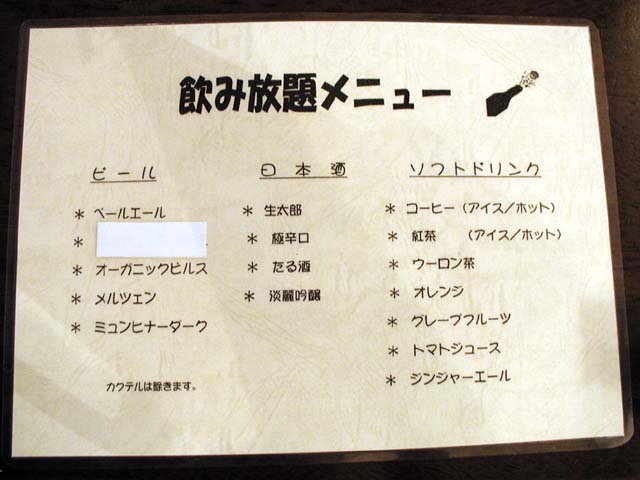 飲み放題メニュー
ビール
* ペールエール
*
* オーガニックピルス
* メルツェン
* ミュンヒナーダーク
カクテルは除きます。
日本酒
* 生太郎
* 極辛口
* たる酒
* 淡麗吟醸
ソフトドリンク
* コーヒー(アイス/ホット)
* 紅茶 (アイス/ホット)
* ウーロン茶
* オレンジ
* グレープフルーツ
* トマトジュース
* ジンジャーエール